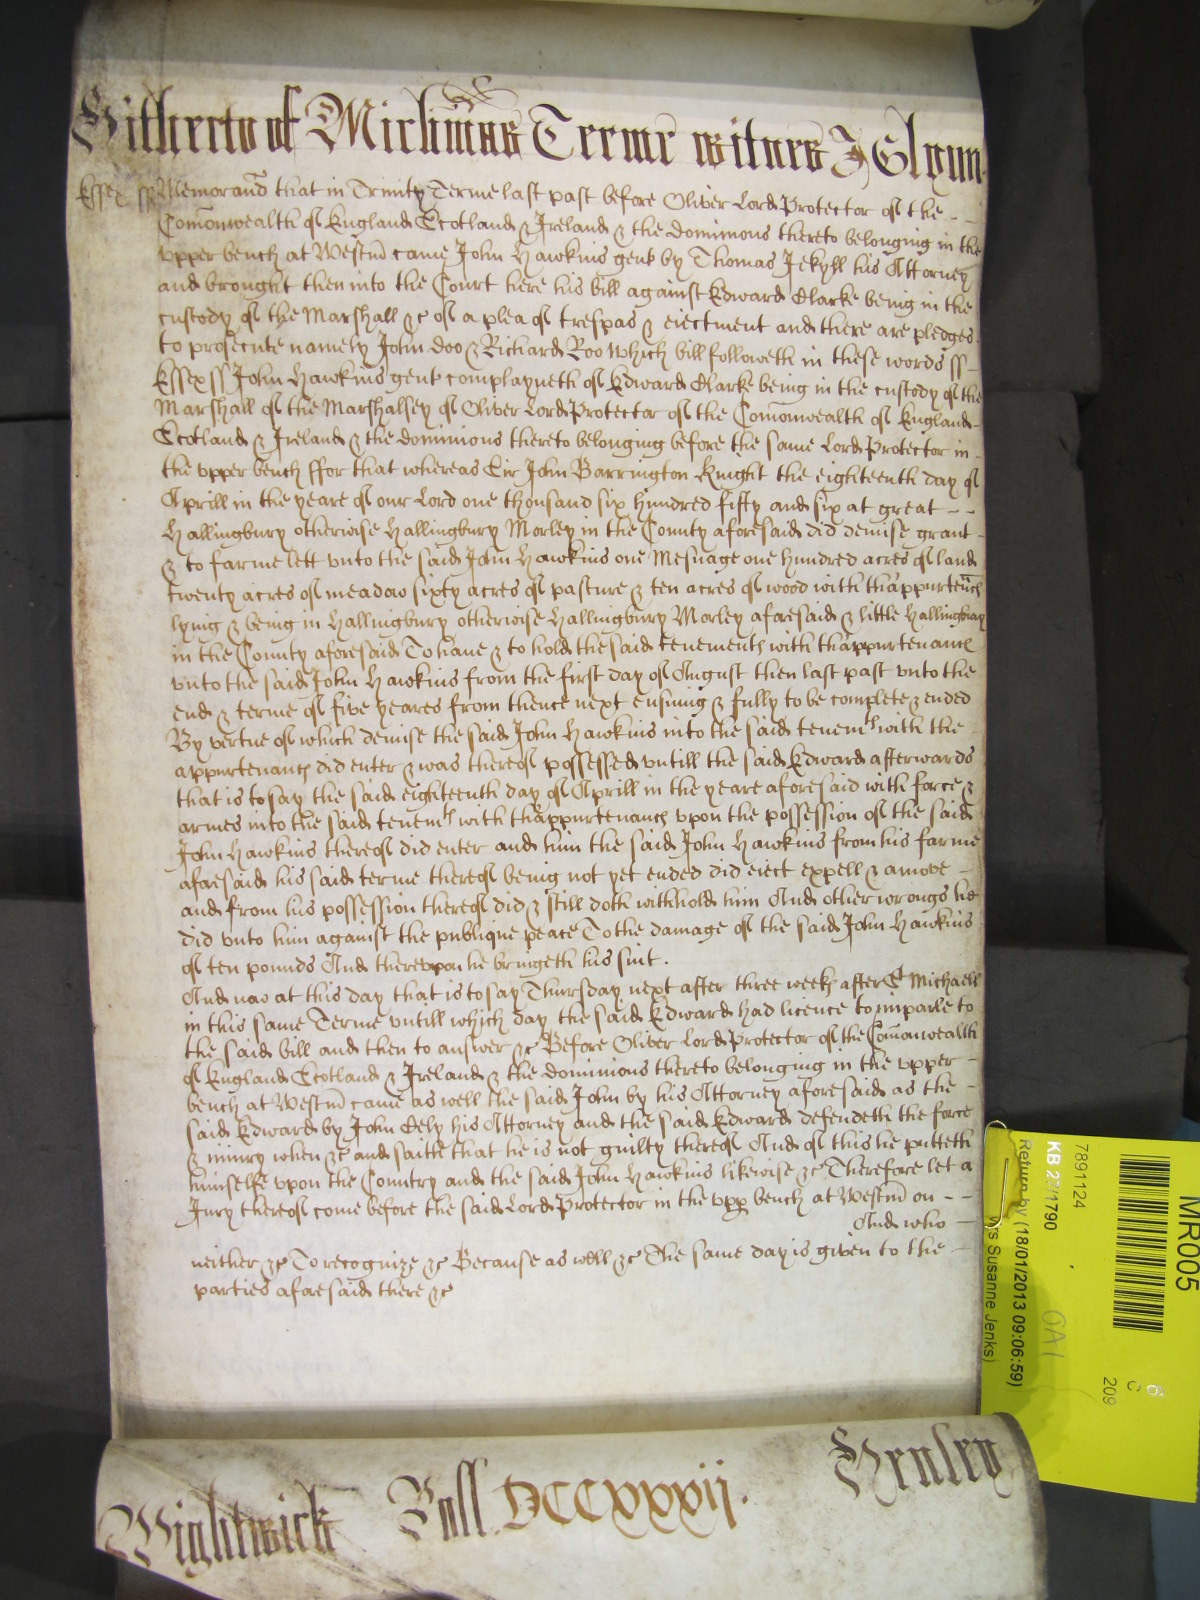 Hitherto of Michmas Terme witnes J Glynn
Essex ss Memorand that in Trinity Terme last past before Oliver Lord Protector of the - -
Comonwealth of England Scotland & Ireland & the dominions thereto belonging in the
vpper bench at Westm came John Hawkins gent by Thomas Jekyll his Attorney
and brought then into the Court here his bill against Edward Clarke being in the
custody of the Marshall &c of a plea of trespas & eiectment and there are pledges
to prosecute namely John Doo & Richard Roo Which bill followeth in these words ss -
Essex ss John Hawkins gent complayneth of Edward Clarke being in the custody of the
Marshall of the Marshalsey of Oliver Lord Protector of the Comonwealth of England -
Scotland & Ireland & the dominions thereto belonging before the same Lord Protector in -
the vpper bench ffor that whereas Sir John Barrington Knight the eighteenth day of
Aprill in the yeare of our Lord one thousand six hundred fifty and six at great - -
Hallingbury otherwise Hallingbury Morley in the County aforesaid did demise grant -
& to farme lett vnto the said John Hawkins one Mesuage one hundred acres of land
twenty acres of meadow sixty acres of pasture & ten acres of wood with thappurtenc
lying & being in Hallingbury otherwise Hallingbury Morley aforesaid & little Hallingbury
in the County aforesaid To haue & to hold the said tenements with thappurtenanc
vnto the said John Hawkins from the first day of August then last past vnto the
end & terme of five yeares from thence next ensuing & fully to be complete & ended
By vertue of which demise the said John Hawkins into the said tenemts with the
appurtenanc did enter & was thereof possessed vntill the said Edward afterwards
that is to say the said eighteenth day of Aprill in the yeare aforesaid with force &
armes into the said tenemts with thappurtenanc vpon the possession of the said
John Hawkins thereof did enter and him the said John Hawkins from his farme
aforesaid his said terme thereof being not yet ended did eiect expell & amove -
and from his possession thereof did & still doth withhold him And other wrongs he
did vnto him against the publique peace To the damage of the said John Hawkins
of ten pounds And therevpon he bringeth his suit.
And now at this day that is to say Thursday next after three weeks after St Michaell
in this same Terme vntill which day the said Edward had licence to imparle to
the said bill and then to answer &c Before Oliver Lord Protector of the Comonwealth
of England Scotland & Ireland & the dominions thereto belonging in the vpper -
bench at Westm came as well the said John by his Attorney aforesaid as the -
said Edward by John Eely his Attorney and the said Edward defendeth the force
& iniury when &c and saith that he is not guilty thereof And of this he putteth
himselfe vpon the Country and the said John Hawkins likewise &c Therefore let a
Jury thereof come before the said Lord Protector in the vpp bench at Westm on - -
And who -
neither &c To recognize &c Because as well &c The same day is given to the -
parties aforesaid there &c
Wightwick Roll DCCxxxij. Henley
MR005
7891124
KB 27/1790
Return by (18/01/2013 09:06:59)
rs Susanne Jenks)
209